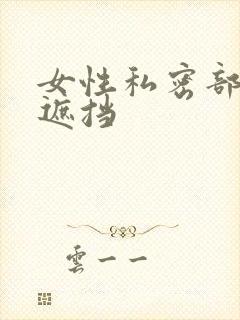 女性私密部
遮挡
雲一一